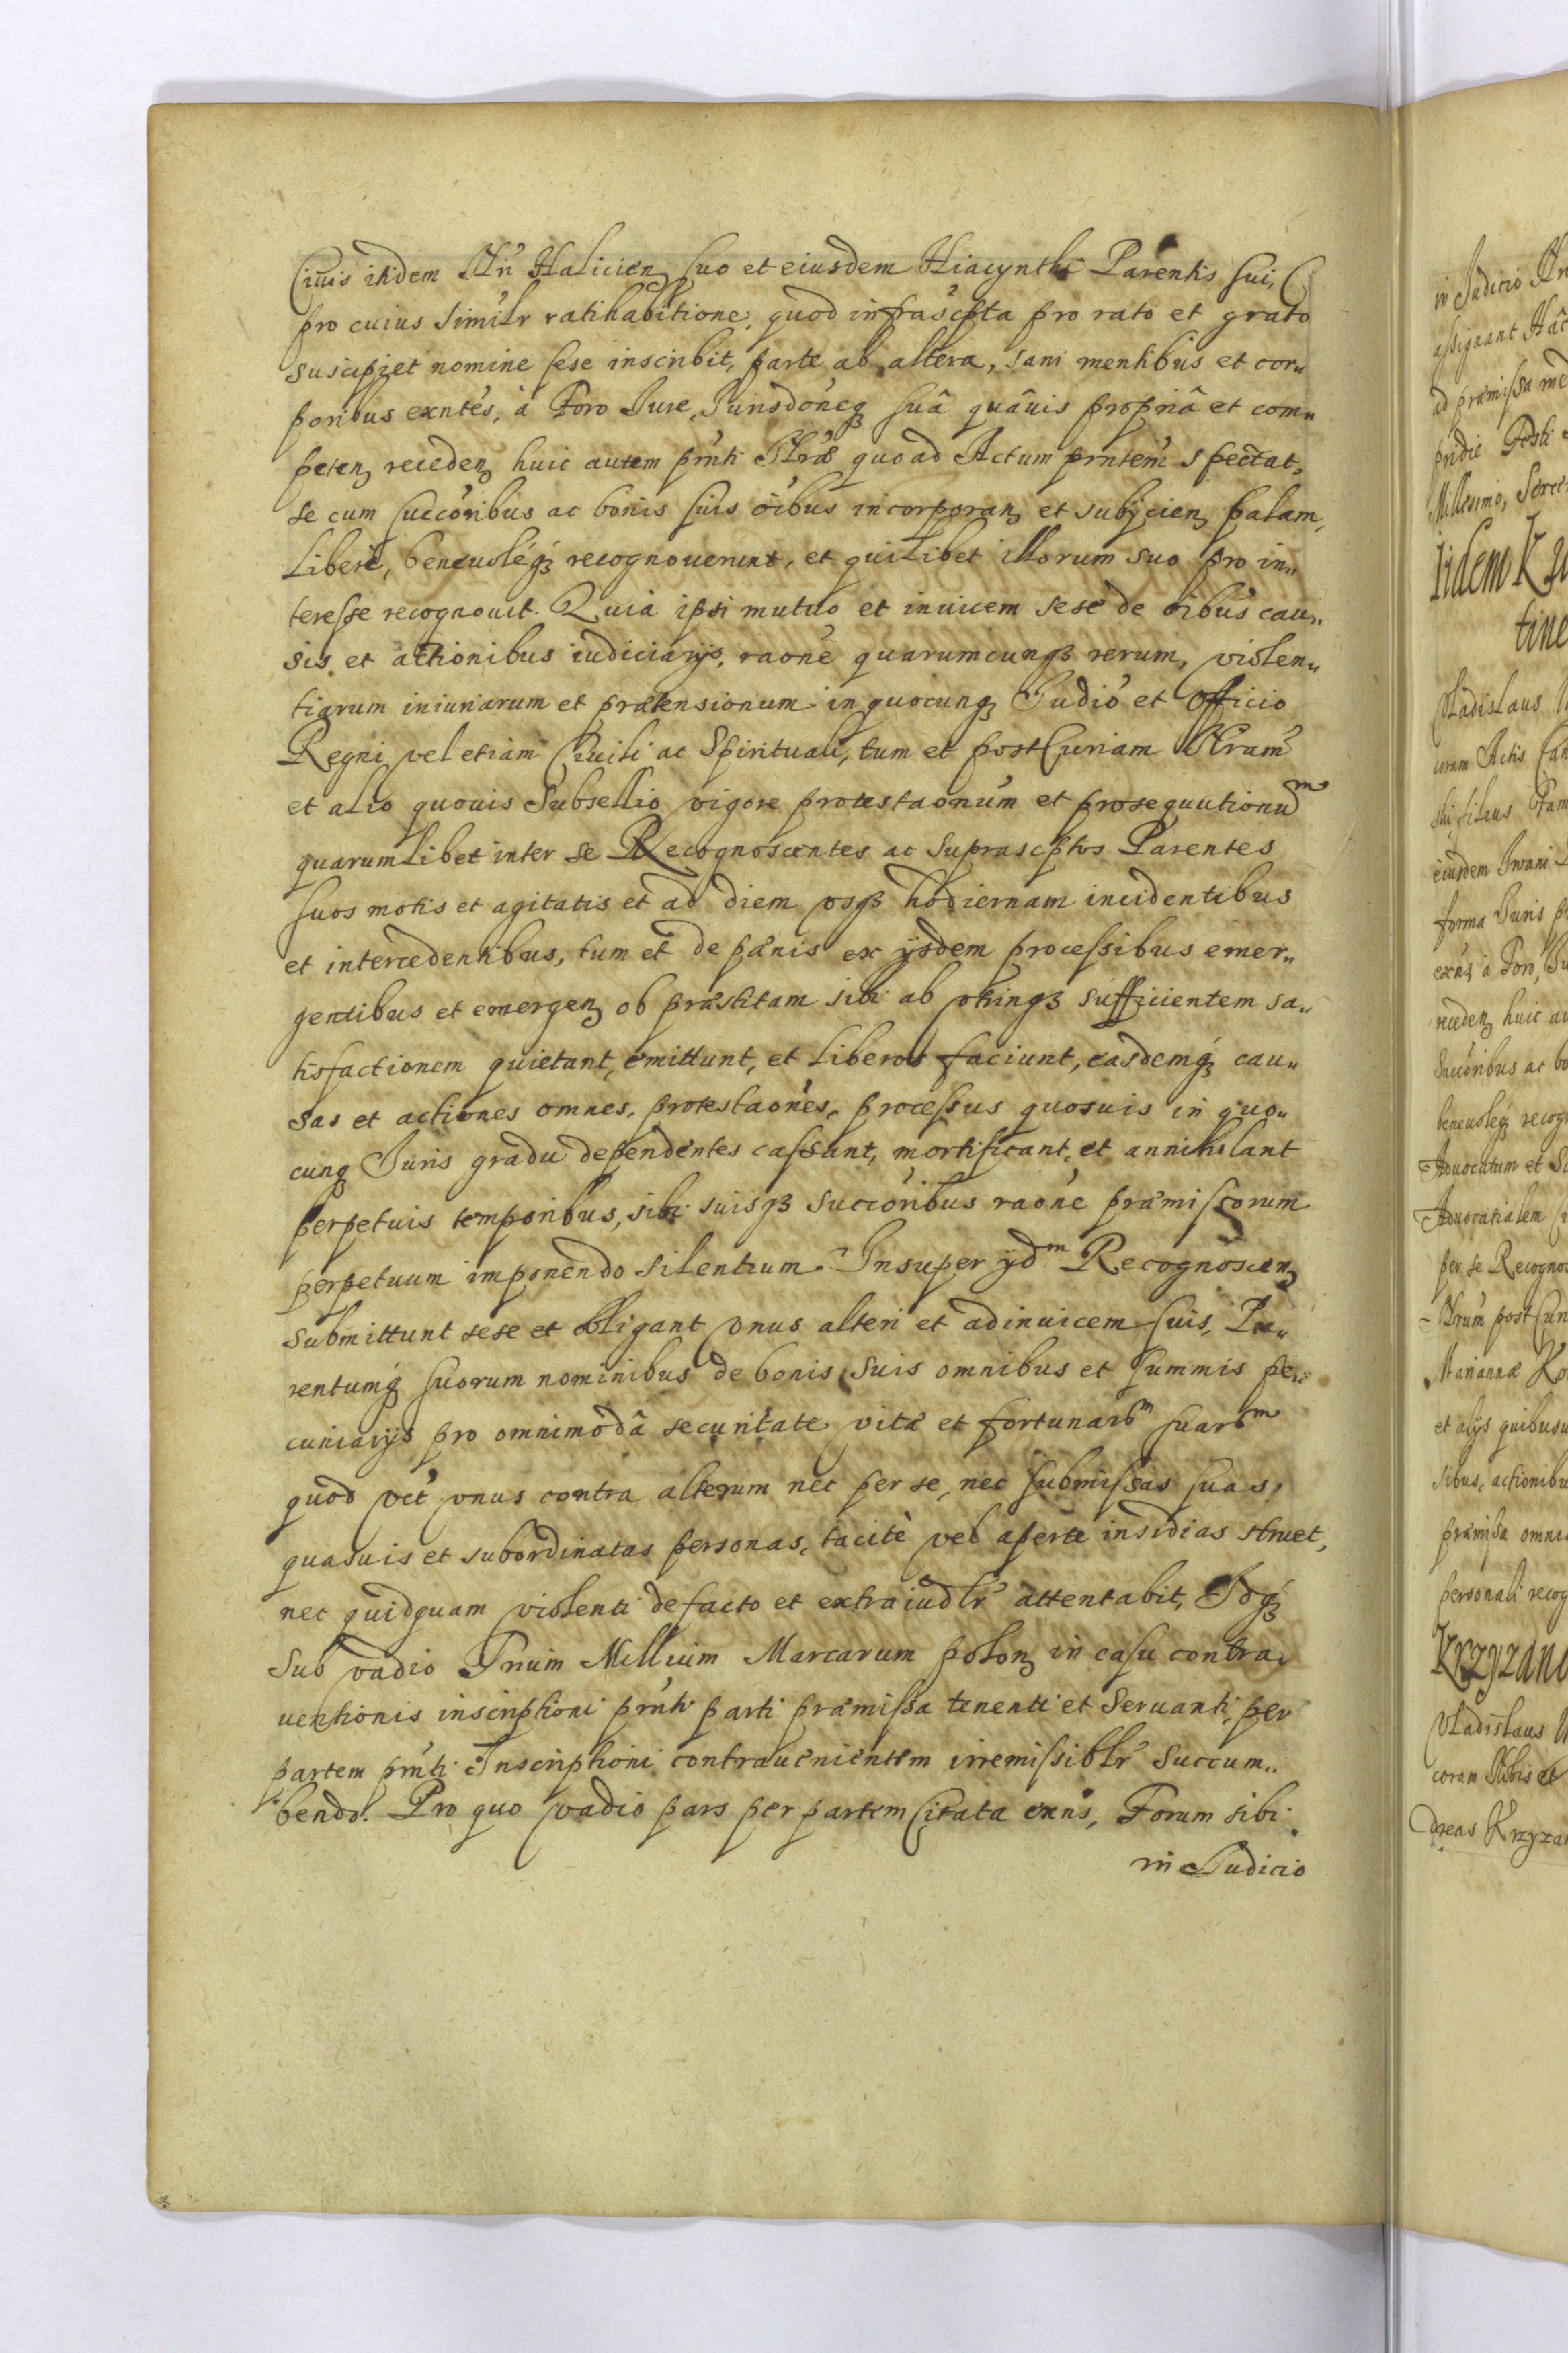 Ciuis itidem Nr̃i Halicien suo et eiusdem Hiacynthi Parentis sui,
pro cuius similr ratihabitione, quod infrascpta pro rato et grato
suscipiet nomine sese inscribit, parte ab altera, sani mentibus et cor„
poribus exntes, à Foro Jure, Jurisdoncq suâ quâuis propriâ et com„
peten receden huic autem prnti Nrõ quoad Actum prntem spectat,
se cum succoribus ac bonis suis oibus incorporan et subijcien palam,
Liberè, beneuoléq recognouerunt, et quilibet illorum suo pro in„
teresse recognouit. Quia ipsi mutuo et inuicem sese de oibus cau„
sis et actionibus iudiciarys, raone quarumcunq rerum, violen„
tiarum iniuriarum et prætensionum in quocunq Judio et Officio
Regni vel etiam Ciuili ac Spirituali, tum et post Curiam Nram
et alio quouis Subsellio vigore protestaonum et prosequutionum
quarumlibet inter se Recognoscentes ac suprascptos Parentes
suos motis et agitatis et ad diem vsq hodiernam incidentibus
et intercedentibus, tum et de pænis ex ysdem processibus emer„
gentibus et emergen ob præstitam sibi ab vtrinq sufficientem sa„
tisfactionem quietant, emittunt, et liberos faciunt, easdemq cau„
sas et actiones omnes, protestaones, processus quosuis in quo„
cunq Juris gradu dependentes cassant, mortificant, et annihilant
perpetuis temporibus, sibi suisq succoribus raone præmissorum
perpetuum imponendo silentium. Insuper ydm Recognoscen
submittunt sese et obligant vnus alteri et adinuicem suis, Pa„
rentumq suorum nominibus de bonis suis omnibus et summis pe„
cuniarys pro omnimodâ securitate vitæ et fortunarum suarum
quod vel vnus contra alterum nec per se, nec submissas suas
quasuis et subordinatas personas, tacitè vel apertè insidias struet,
nec quidquam violenti de facto et extraiudlr attentabit, Idq
sub vadio Trium Millium Marcarum polon in casu contra„
uentionis inscriptioni prnti parti præmissa tenenti et seruanti, per
partem prnti Inscriptioni contrauenientem irremissiblr succum„
bendo. Pro quo vadio pars per partem citata exns, Forum sibi
in Judicio
in Judicio
assignant
ad præmissa
pridie Festi
Millesimo,
Iidem
tine
Vladislaus
coram Actis
filius
eiusdem Iwani
forma Juris
exns à Foro,
receden huic
succoribus ac
beneuoléq
Aduocatum et
Aduocatialem
per se
post
Mariannæ
et alys
sibus, actionibu
præmissa
personali
Krzyzano
Vladislaus
coram Nobis et
dreas Krzyza